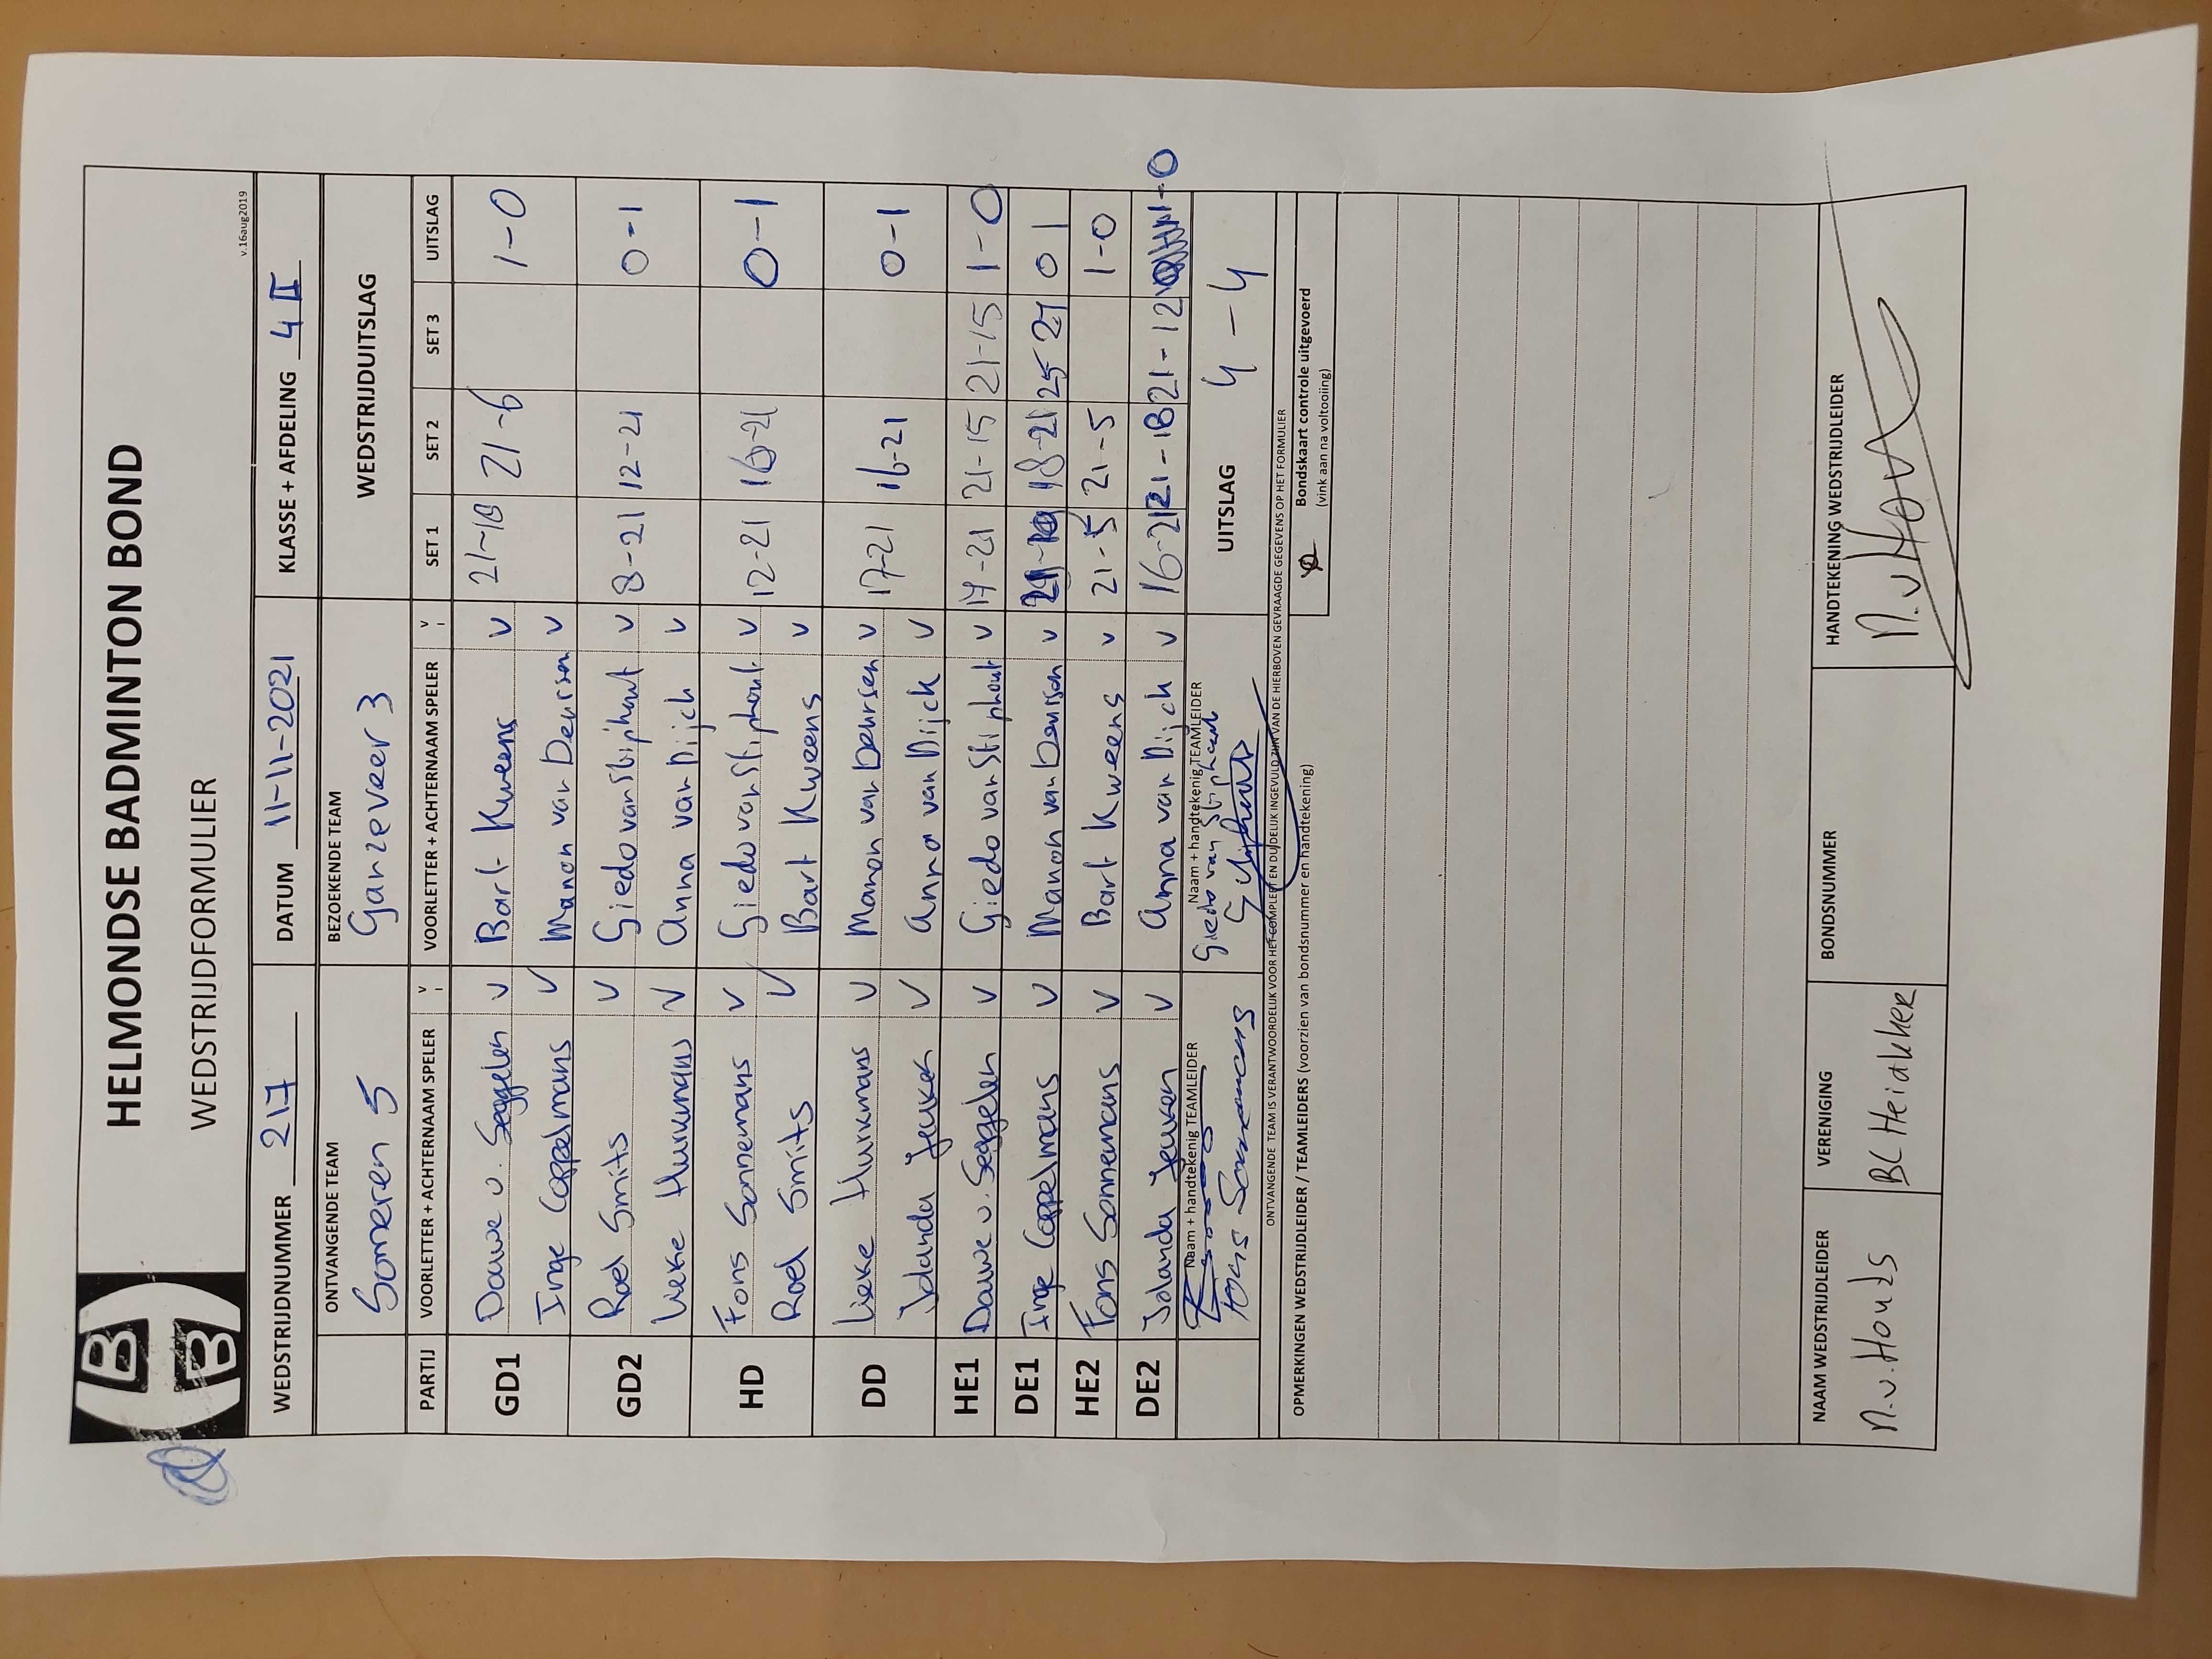 HELMONDSE BADMINTON BOND
WEDSTRIJDFORMULIER
v.16aug2019
WEDSTRIJDNUMMER 217 DATUM 11-11-2021 KLASSE + AFDELING 4 II
ONTVANGENDE TEAM BEZOEKENDE TEAM WEDSTRIJDUITSLAG
Someren 5 Ganzeveer 3
PARTIJ VOORLETTER + ACHTERNAAM SPELER V VOORLETTER + ACHTERNAAM SPELER V SET 1 SET 2 SET 3 UITSLAG
GD1 Douwe v. Seggelen V Bart Kweens V 21-18 21-6 1-0
Inge Coppelmans V Manon van Deursen V
GD2 Roel Smits V Giedo van Stiphout V 8-21 12-21 0-1
Lieke Hurkmans V Anna van Dijck V
HD Fons Sonnemans V Giedo van Stiphout V 12-21 16-21 0-1
Roel Smits V Bart Kweens V
DD Lieke Hurkmans V Manon van Deursen V 17-21 16-21 0-1
Jolanda Jeuken V Anna van Dijck V
HE1 Douwe v. Seggelen V Giedo van Stiphout V 14-21 21-15 21-15 1-0
DE1 Inge Coppelmans V Manon van Deursen V 18-21 25 27 0 1
HE2 Fons Sonnemans V Bart Kweens V 21-5 21-5 1-0
DE2 Jolanda Jeuken V Anna van Dijck V 16-21 21-18 21-12 1-0
Naam + handtekenig TEAMLEIDER Naam + handtekenig TEAMLEIDER UITSLAG 4-4
Fons Sonnemans Giedo van Stiphout
ONTVANGENDE TEAM IS VERANTWOORDELIJK VOOR HET COMPLEET EN DUIDELIJK INGEVULD ZIJN VAN DE HIERBOVEN GEVRAAGDE GEGEVENS OP HET FORMULIER
OPMERKINGEN WEDSTRIJDLEIDER / TEAMLEIDERS (voorzien van bondsnummer en handtekening)
Bondskaart controle uitgevoerd
(vink aan na voltooiing)
NAAM WEDSTRIJDLEIDER VERENIGING BONDSNUMMER HANDTEKENING WEDSTRIJDLEIDER
N.v.Houds BC Heidakker N.v.Hou